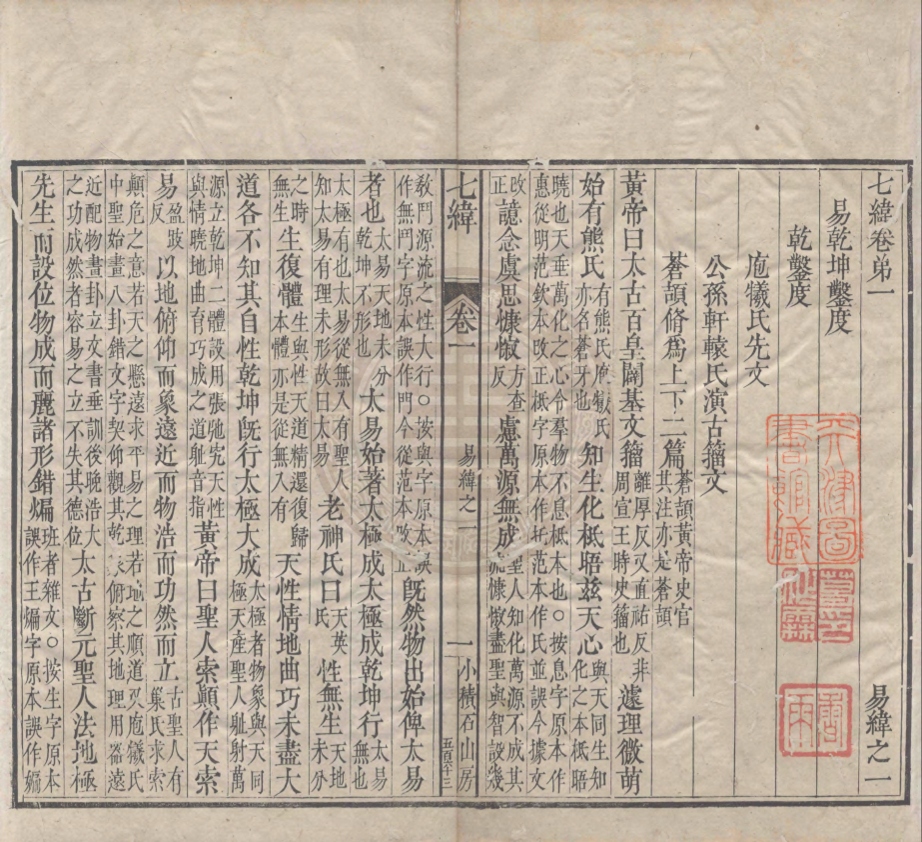 七緯卷弟一
易緯之一
易乾坤鑿度
乾鑿度
庖犧氏先文
公孫軒轅氏演古籀文
蒼頡脩爲上下二篇蒼頡黃帝史官其注亦是蒼頡
黃帝曰太古百皇闢基文籀離厚反又直祐反非周宣王時史籀也遽理微萌
始有熊氏有熊氏庖犧氏亦名蒼牙也知生化柢晤茲天心與天同生知化之本柢晤
曉也天垂萬化之心令羣物不息柢本也○按息字原本作惠從明范欽本改正柢字原本作㧗范本作氏並誤今據文
改正譩念虞思慷愾方查反慮萬源無成聖人知化萬源不成其慷愾盡聖與智設幾
七緯
卷一
易緯之一
一
小積石山房
五百六十三
敎門源流之性大行○按與字原本誤作無門字原本誤作門今從范本改正旣然物出始俾太易
者也太易天地未分乾坤不形也太易始著太極成太極成乾坤行太易無也
太極有也太易從無入有聖人知太易有理未形故曰太易老神氏曰天英氏性無生天地未分
之時無生生復體生與性天道精還復歸本體亦是從無入有天性情地曲巧未盡大
道各不知其自性乾坤旣行太極大成太極者物象與天同極天產聖人耻躬萬
源立乾坤二體設用張弛究天性與情曉地曲育巧成之道耻音指黃帝曰聖人索顚作天索
易盈跂反以地俯仰而象遠近而物浩而功然而立古聖人有巢氏求索
顚危之意若天之懸遠求平易之理若地之順道及庖犧氏中聖始畫八卦錯文字契仰觀其乾象俯察其地理用器遠
近配物畫卦立文書垂訓後晚浩大之功成然者容易之立不失其德位太古斷元聖人法地極
先生而設位物成而麗諸形錯煸班者雜文○按生字原本誤作王煸字原本誤作斒